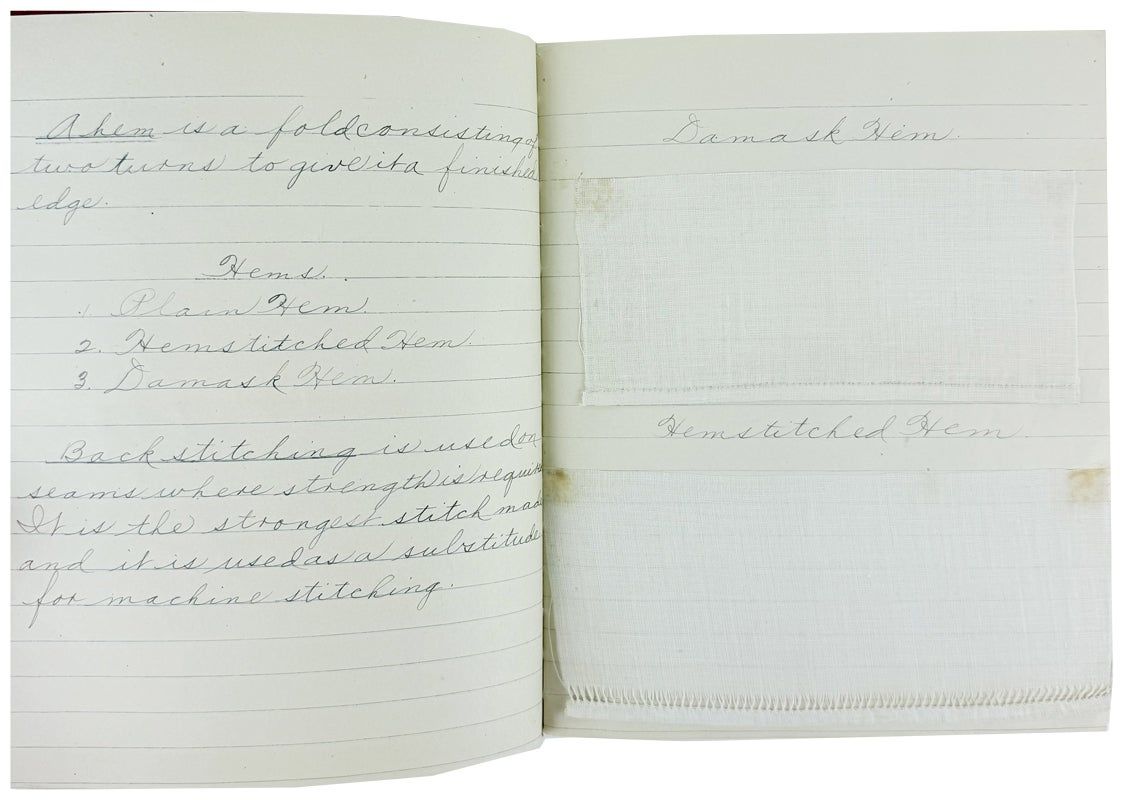 A hem is a fold consisting of
two turns to give it a finished
edge.
Hems.
1. Plain Hem.
2. Hemstitched Hem.
3. Damask Hem.
Back stitching is used on
seams where strength is require
It is the strongest stitch made
and it is used as a substitute
for machine stitching.
Damask Hem.
Hemstitched Hem.